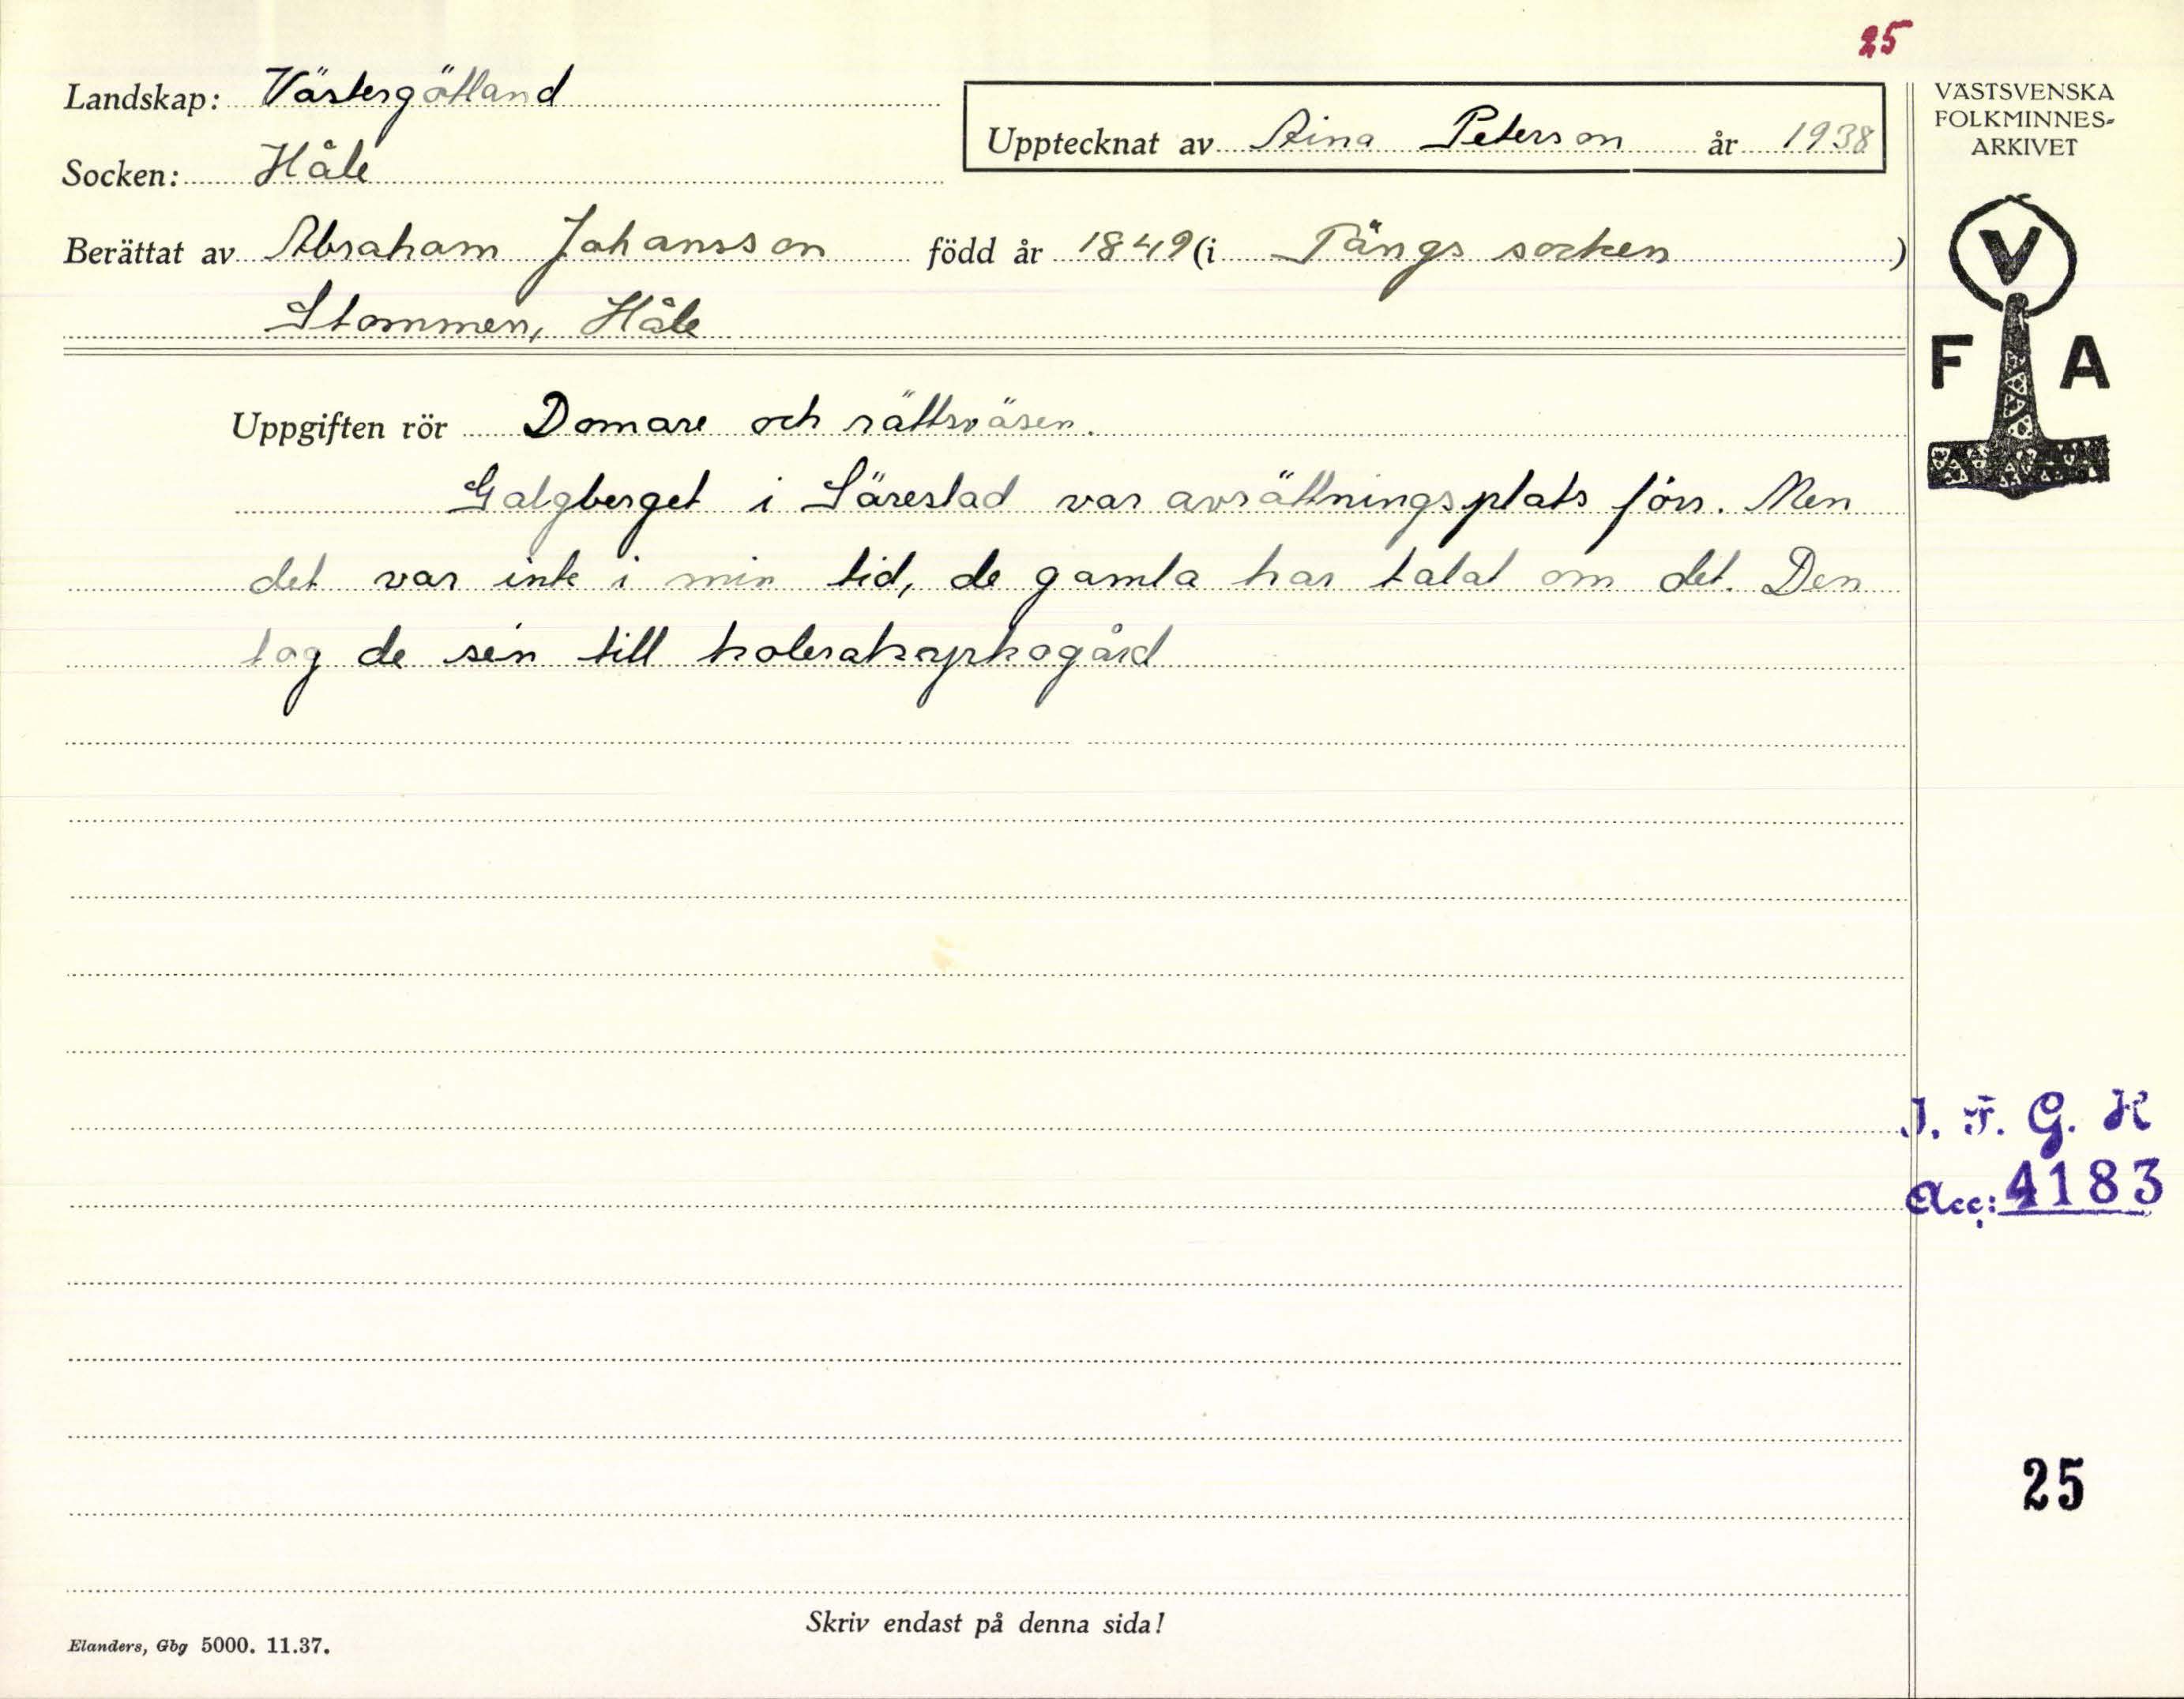 25
Landskap: Västergötland
Upptecknat av Aina Peterson år 1938
Socken: Håle
Berättat av Abraham Johansson född år 1849 (i Tängs socken)
Stommen, Håle
Uppgiften rör Domare och rättsväsen.
Galgberget i Särestad var avrättningsplats förr. Men
det var inte i min tid, de gamla har talat om det. Den
tog de sen till kolerakyrkogård
VÄSTSVENSKA
FOLKMINNES-
ARKIVET
V
F A
I. F. G. H
Acc: 4183
25
Skriv endast på denna sida!
Elanders, Gbg 5000. 11.37.